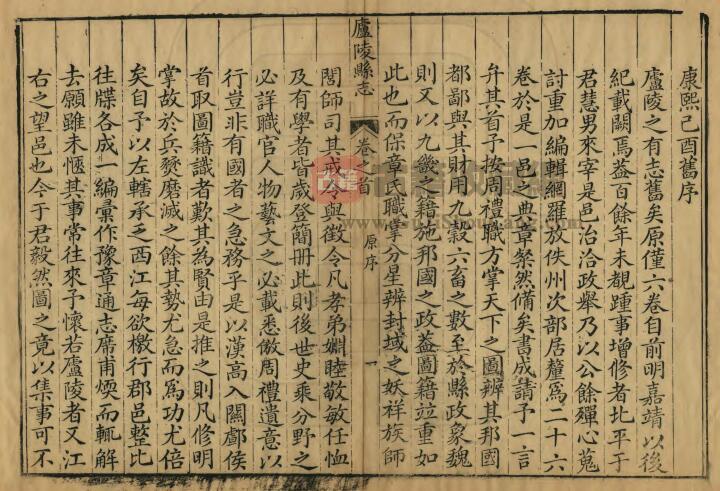 康熙己酉舊序
廬陵之有志舊矣原僅六卷自前明嘉靖以後
紀載闕焉益百餘年未覩踵事增修者比平于
君慧男來宰是邑治洽政舉乃以公餘殫心蒐
討重加編輯網羅放佚州次部居釐爲二十六
卷於是一邑之典章粲然備矣書成請予一言
弁其首予按周禮職方掌天下之圖辨其邦國
都鄙與其財用九穀六畜之數至於縣政象魏
則又以九畿之籍施邦國之政蓋圖籍竝重如
此也而保章氏職掌分星辨封域之妖祥族師
廬陵縣志
卷之首
原序
一
閭師司其戒令與徵令凡孝弟婣睦敬敏任恤
及有學者皆歲登簡冊此則後世史乘分野之
必詳職官人物藝文之必載悉倣周禮遺意以
行豈非有國者之急務乎是以漢高入關酇侯
首取圖籍識者歎其為賢由是推之則凡修明
掌故於兵燹磨滅之餘其勢尤急而爲功尤倍
矣自予以左轄承乏西江每欲檄行郡邑整比
往牒各成一編彙作豫章通志席甫煗而輒解
去願雖未愜其事常往來予懷若廬陵者又江
右之望邑也今于君毅然圖之竟以集事可不